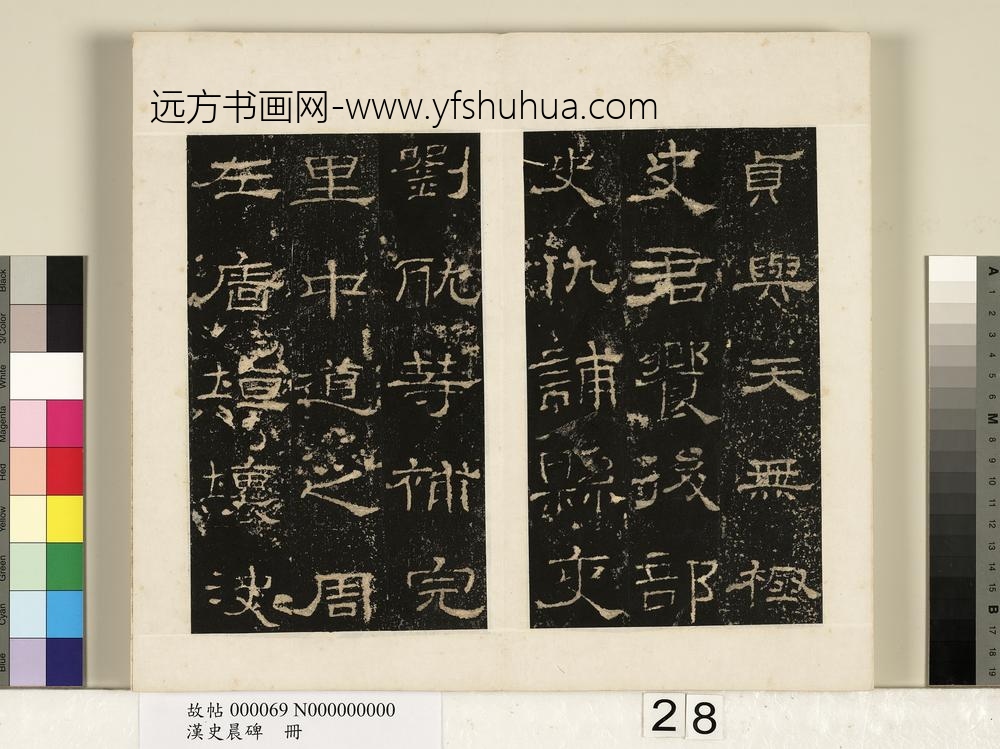 远方书画网-www.yfshuhua.com
貞與天無極
史君饗後部
史仇誧縣吏
劉耽等補完
里中道之周
左廧垣壞決
Black
3/Color
White
Magenta
Red
Yellow
Green
Cyan
Blue
A 1 2 3 4 5 6 M 8 9 10 11 12 13 14 15 B 17 18 19
故帖 000069 N000000000
漢史晨碑 冊
28